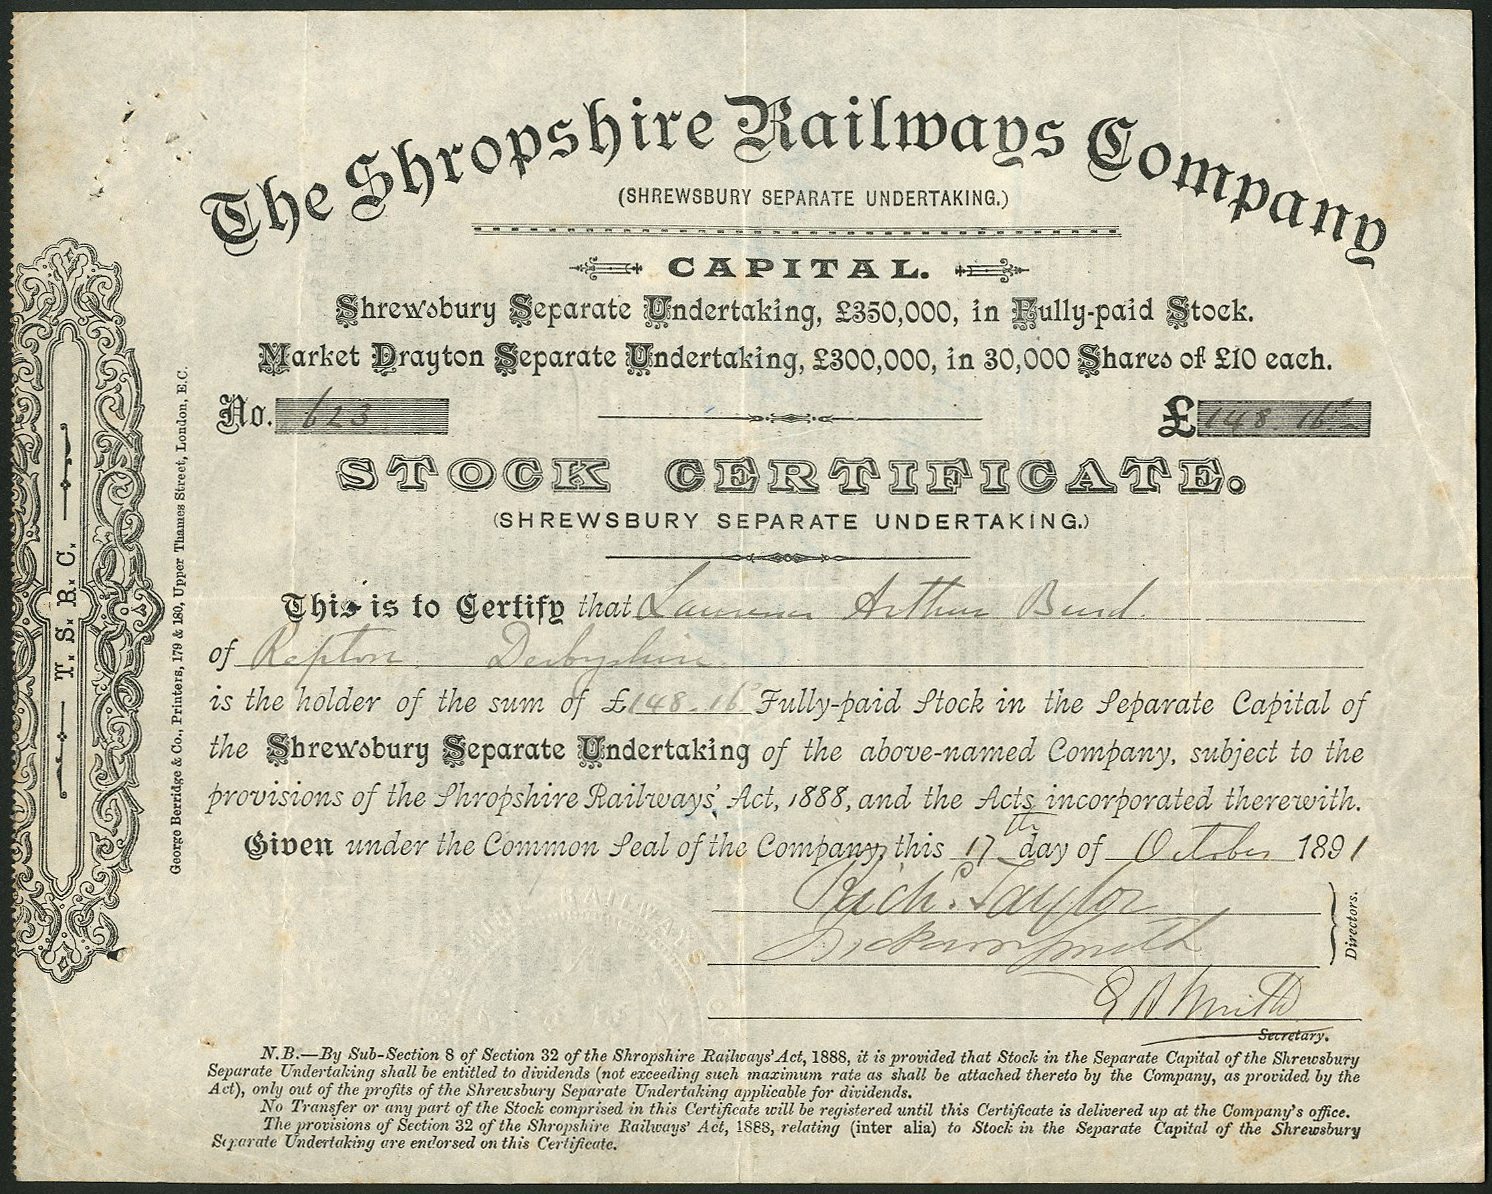 The Shropshire Railways Company
(SHREWSBURY SEPARATE UNDERTAKING.)
CAPITAL.
Shrewsbury Separate Undertaking, £350,000, in Fully-paid Stock.
Market Drayton Separate Undertaking, £300,000, in 30,000 Shares of £10 each.
No. 623
£148.16
STOCK CERTIFICATE.
(SHREWSBURY SEPARATE UNDERTAKING.)
This is to Certify that Laurence Arthur Burd
of Repton Derbyshire
is the holder of the sum of £148.16 Fully-paid Stock in the Separate Capital of
the Shrewsbury Separate Undertaking of the above-named Company, subject to the
provisions of the Shropshire Railways' Act, 1888, and the Acts incorporated therewith.
Given under the Common Seal of the Company, this 17th day of October 1891
Richd. Taylor
Smith
Directors.
Smith
Secretary.
N.B.—By Sub-Section 8 of Section 32 of the Shropshire Railways' Act, 1888, it is provided that Stock in the Separate Capital of the Shrewsbury
Separate Undertaking shall be entitled to dividends (not exceeding such maximum rate as shall be attached thereto by the Company, as provided by the
Act), only out of the profits of the Shrewsbury Separate Undertaking applicable for dividends.
No Transfer or any part of the Stock comprised in this Certificate will be registered until this Certificate is delivered up at the Company's office.
The provisions of Section 32 of the Shropshire Railways' Act, 1888, relating (inter alia) to Stock in the Separate Capital of the Shrewsbury
Separate Undertaking are endorsed on this Certificate.
T. S. R. C.
George Berridge & Co., Printers, 179 & 180, Upper Thames Street, London, E.C.